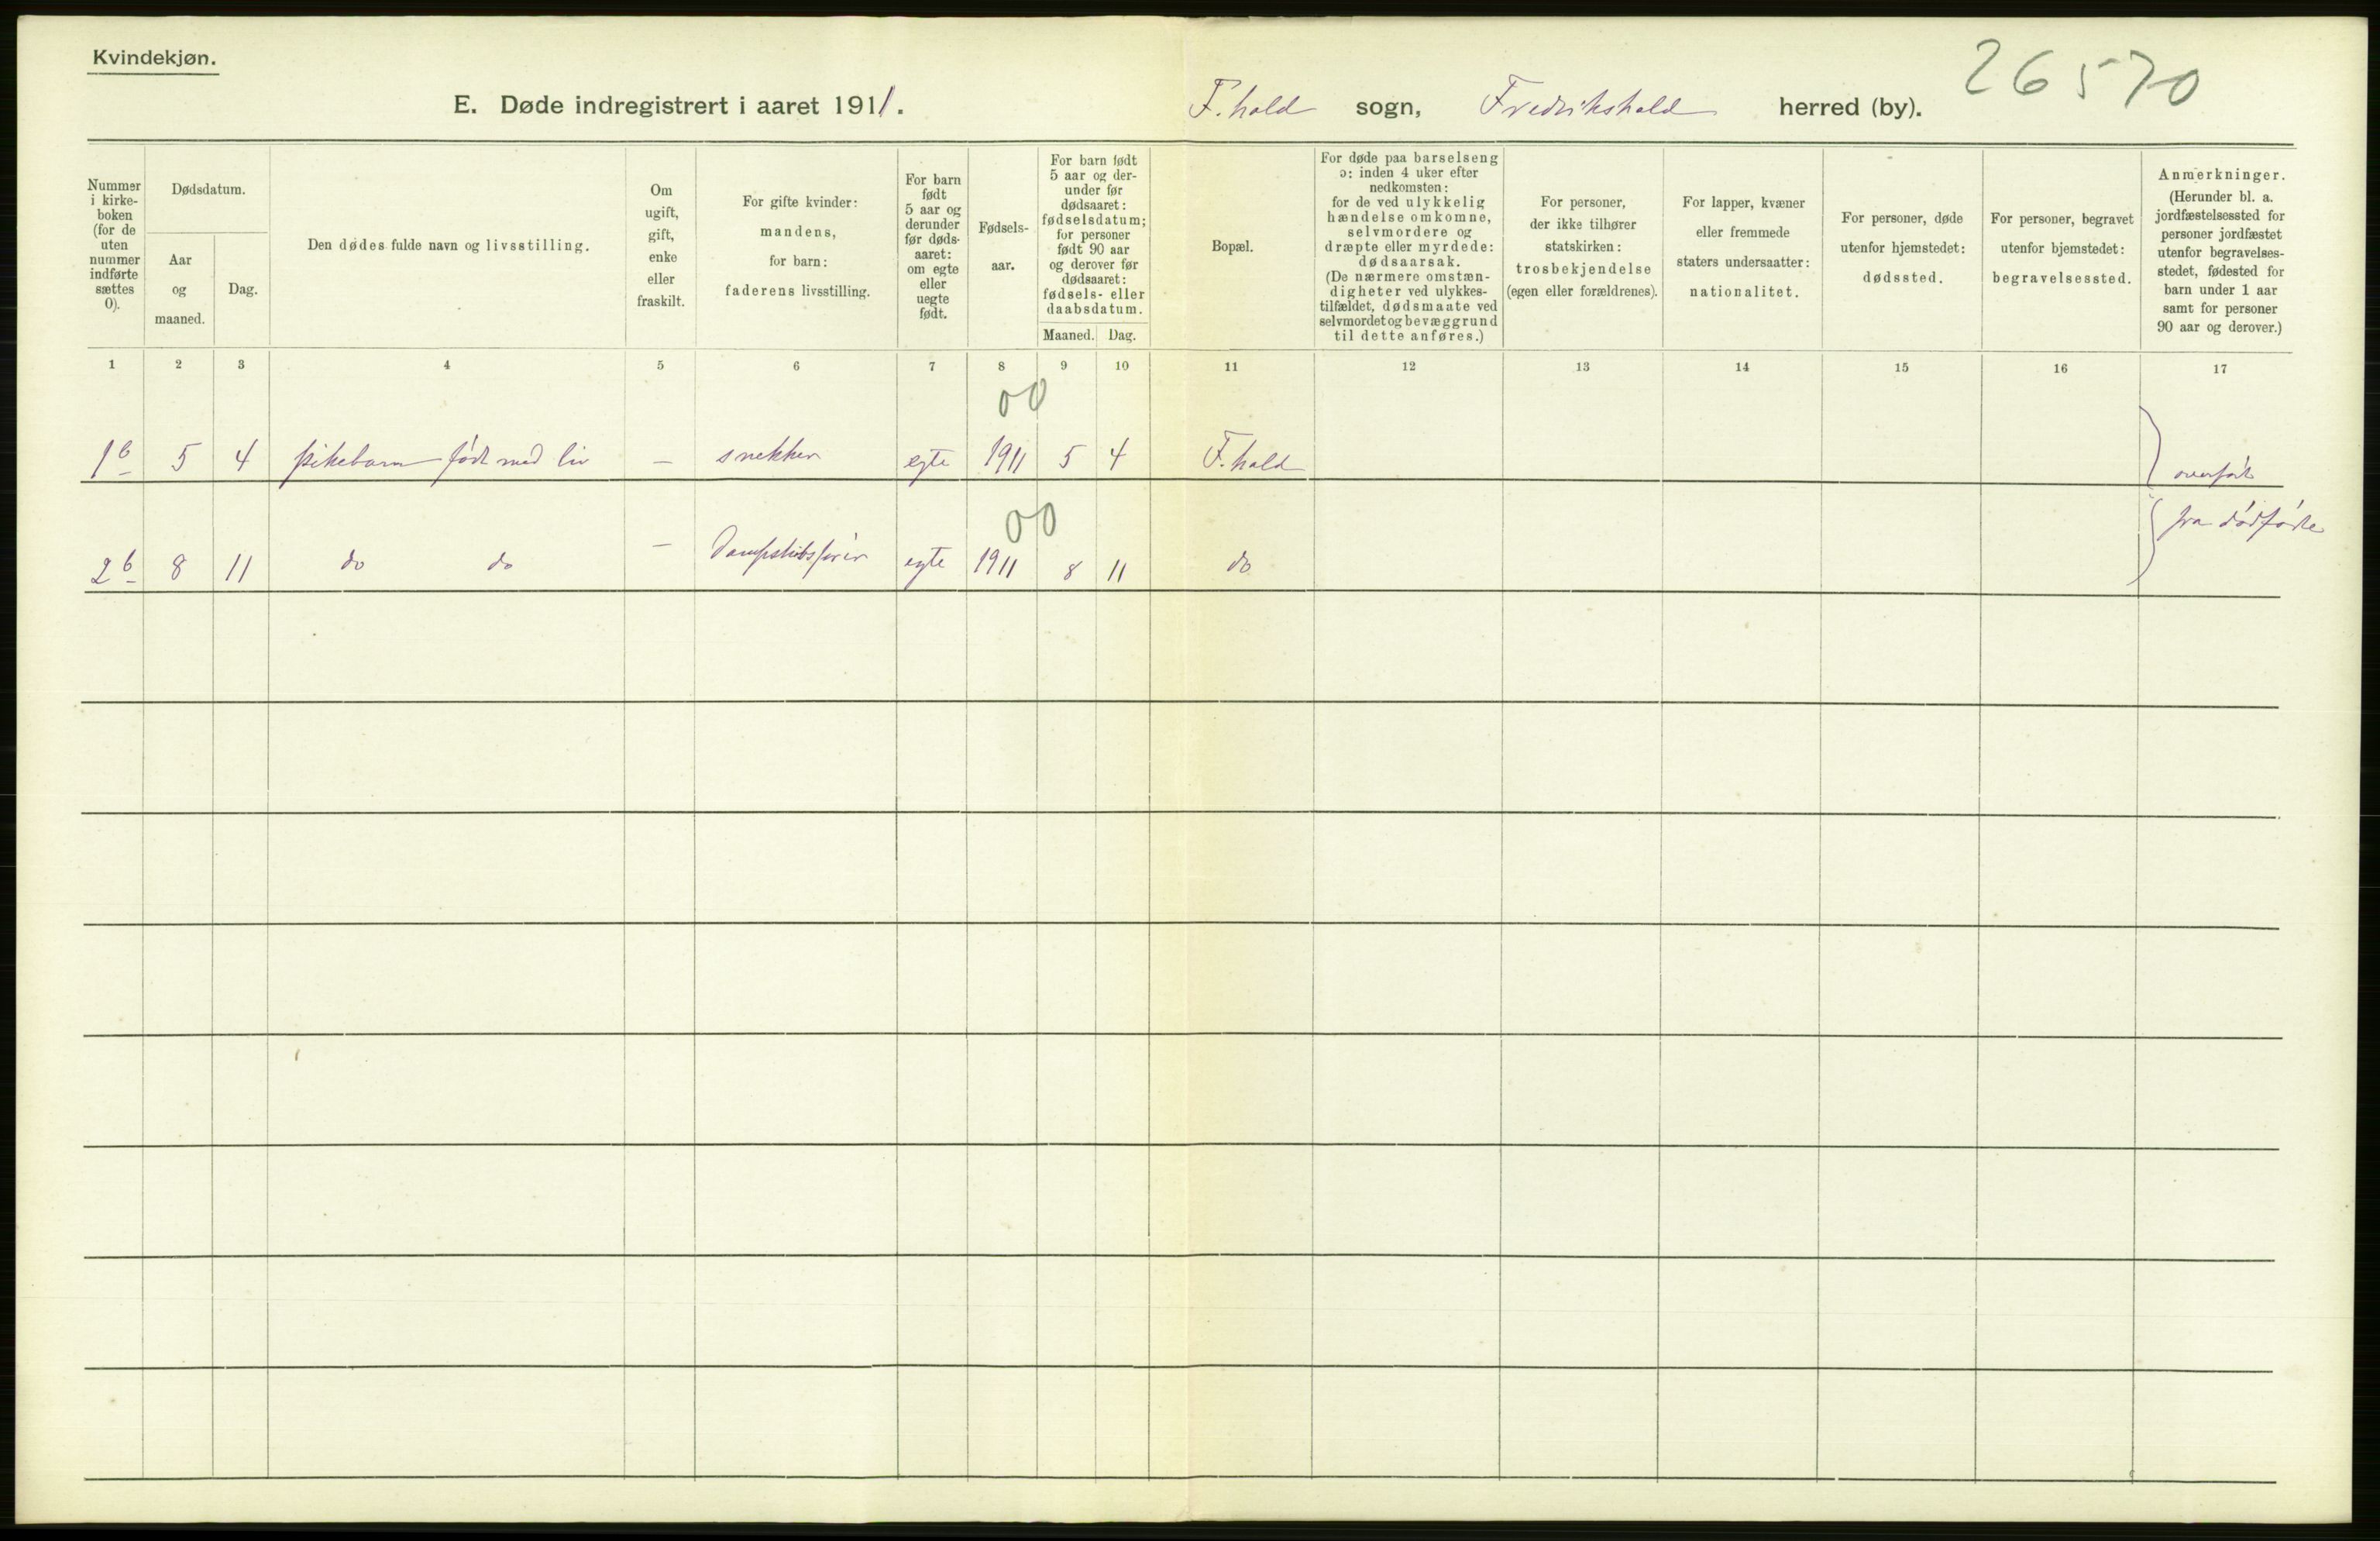 Kvindekjøn.
26570
E. Døde indregistrert i aaret 1911. F.hald sogn, Fredrikshald herred (by).
Nummer
i kirke-
boken
(for de
uten
nummer
indførte
sættes
0).
Dødsdatum.
Aar
og
maaned.
Dag.
Den dødes fulde navn og livsstilling.
Om
ugift,
gift,
enke
eller
fraskilt.
For gifte kvinder:
mandens,
for barn:
faderens livsstilling.
For barn
født
5 aar og
derunder
før døds-
aaret:
om egte
eller
uegte
født.
Fødsels-
aar.
For barn født
5 aar og der-
under før
dødsaaret:
fødselsdatum;
for personer
født 90 aar
og derover før
dødsaaret:
fødsels- eller
daabsdatum.
Maaned. Dag.
Bopæl.
For døde paa barselseng
ɔ: inden 4 uker efter
nedkomsten:
for de ved ulykkelig
hændelse omkomne,
selvmordere og
dræpte eller myrdede:
dødsaarsak.
(De nærmere omstæn-
digheter ved ulykkes-
tilfældet, dødsmaate ved
selvmordet og bevæggrund
til dette anføres.)
For personer,
der ikke tilhører
statskirken:
trosbekjendelse
(egen eller forældrenes).
For lapper, kvæner
eller fremmede
staters undersaatter:
nationalitet.
For personer, døde
utenfor hjemstedet:
dødssted.
For personer, begravet
utenfor bjemstedet:
begravelsessted.
Anmerkninger.
(Herunder bl. a.
jordfæstelsessted for
personer jordfæstet
utenfor begravelses-
stedet, fødested for
barn under 1 aar
samt for personer
90 aar og derover.)
1 2 3 4 5 6 7 8 9 10 11 12 13 14 15 16 17
00
1b 5 4 pikebarn født med liv — snekker egte 1911 5 4 F.hald overført
00
fra dødfødte
2b 8 11 do do — Dampskibsfører egte 1911 8 11 do